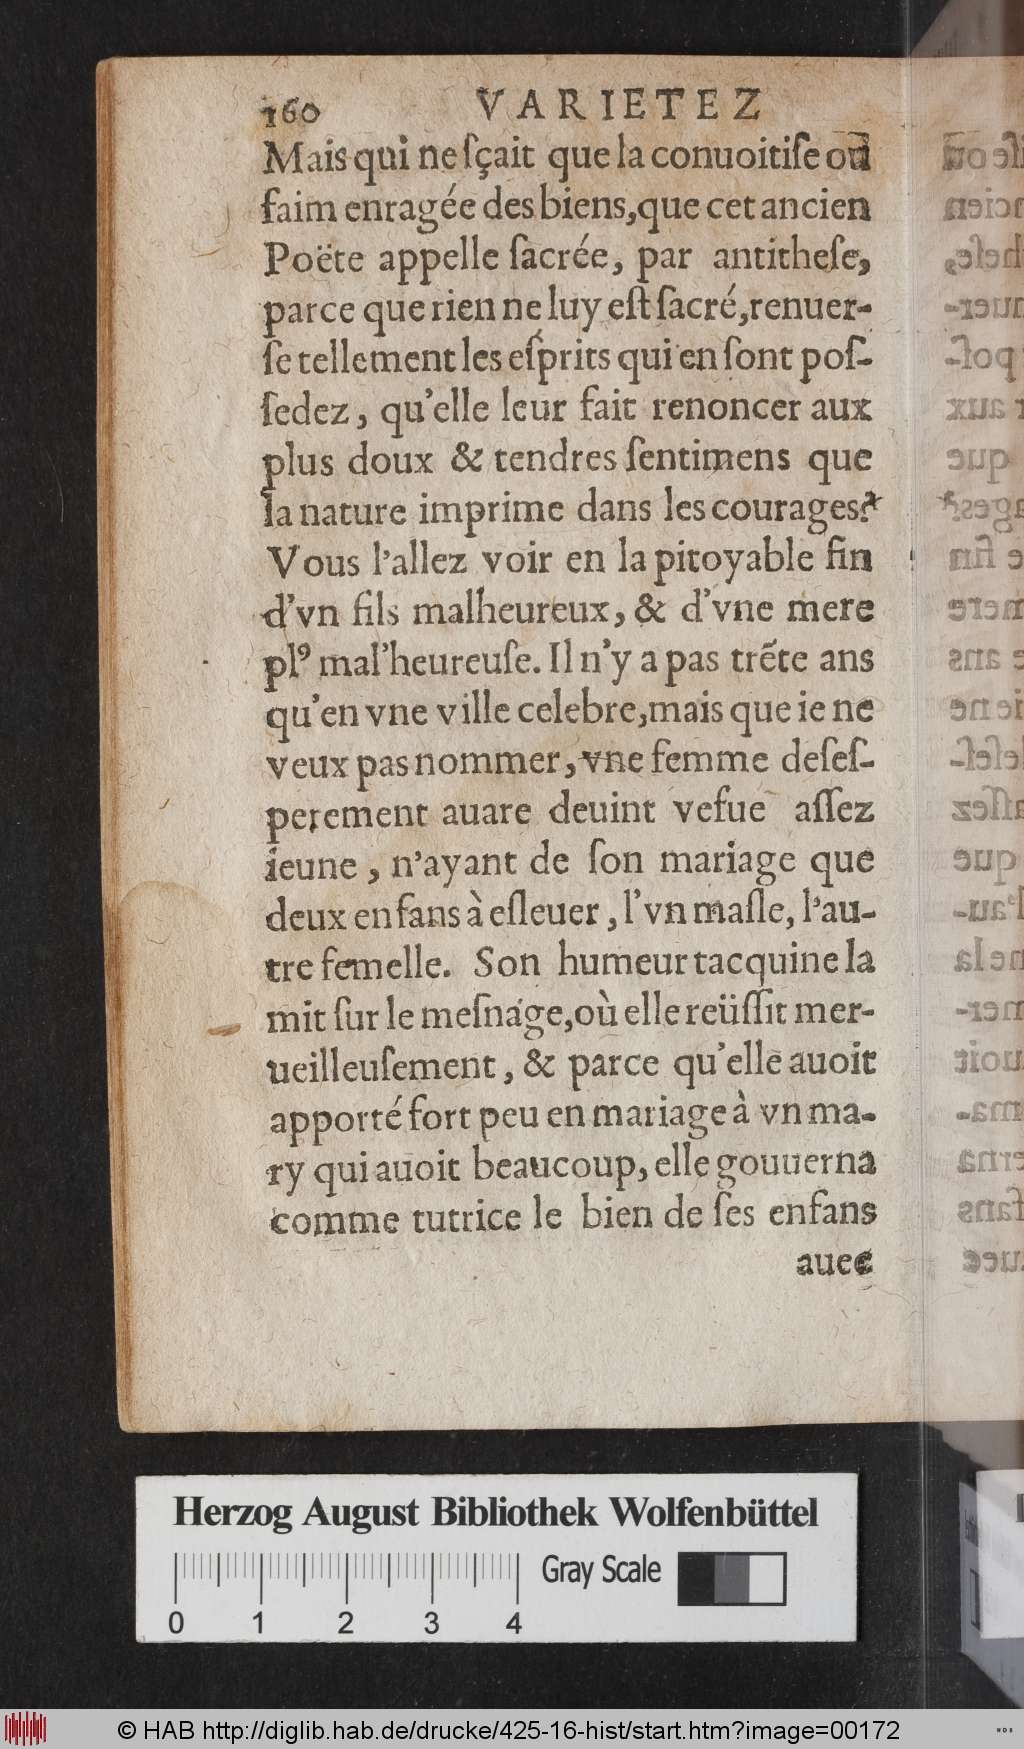 160 VARIETEZ
Mais qui ne ſçait que la conuoitiſe ou
faim enragée des biens, que cet ancien
Poëte appelle ſacrée, par antitheſe,
parce que rien ne luy eſt ſacré, renuer-
ſe tellement les eſprits qui en ſont poſ-
ſedez, qu'elle leur fait renoncer aux
plus doux & tendres ſentimens que
la nature imprime dans les courages?
Vous l'allez voir en la pitoyable fin
d'vn fils malheureux, & d'vne mere
plꝰ mal'heureuſe. Il n'y a pas trẽte ans
qu'en vne ville celebre, mais que ie ne
veux pas nommer, vne femme deſeſ-
perement auare deuint vefue aſſez
ieune, n'ayant de ſon mariage que
deux enfans à eſleuer, l'vn maſle, l'au-
tre femelle. Son humeur tacquine la
mit ſur le meſnage, où elle reüſſit mer-
ueilleuſement, & parce qu'elle auoit
apporté fort peu en mariage à vn ma-
ry qui auoit beaucoup, elle gouuerna
comme tutrice le bien de ſes enfans
auec
Herzog August Bibliothek Wolfenbüttel
Gray Scale
0 1 2 3 4
© HAB http://diglib.hab.de/drucke/425-16-hist/start.htm?image=00172